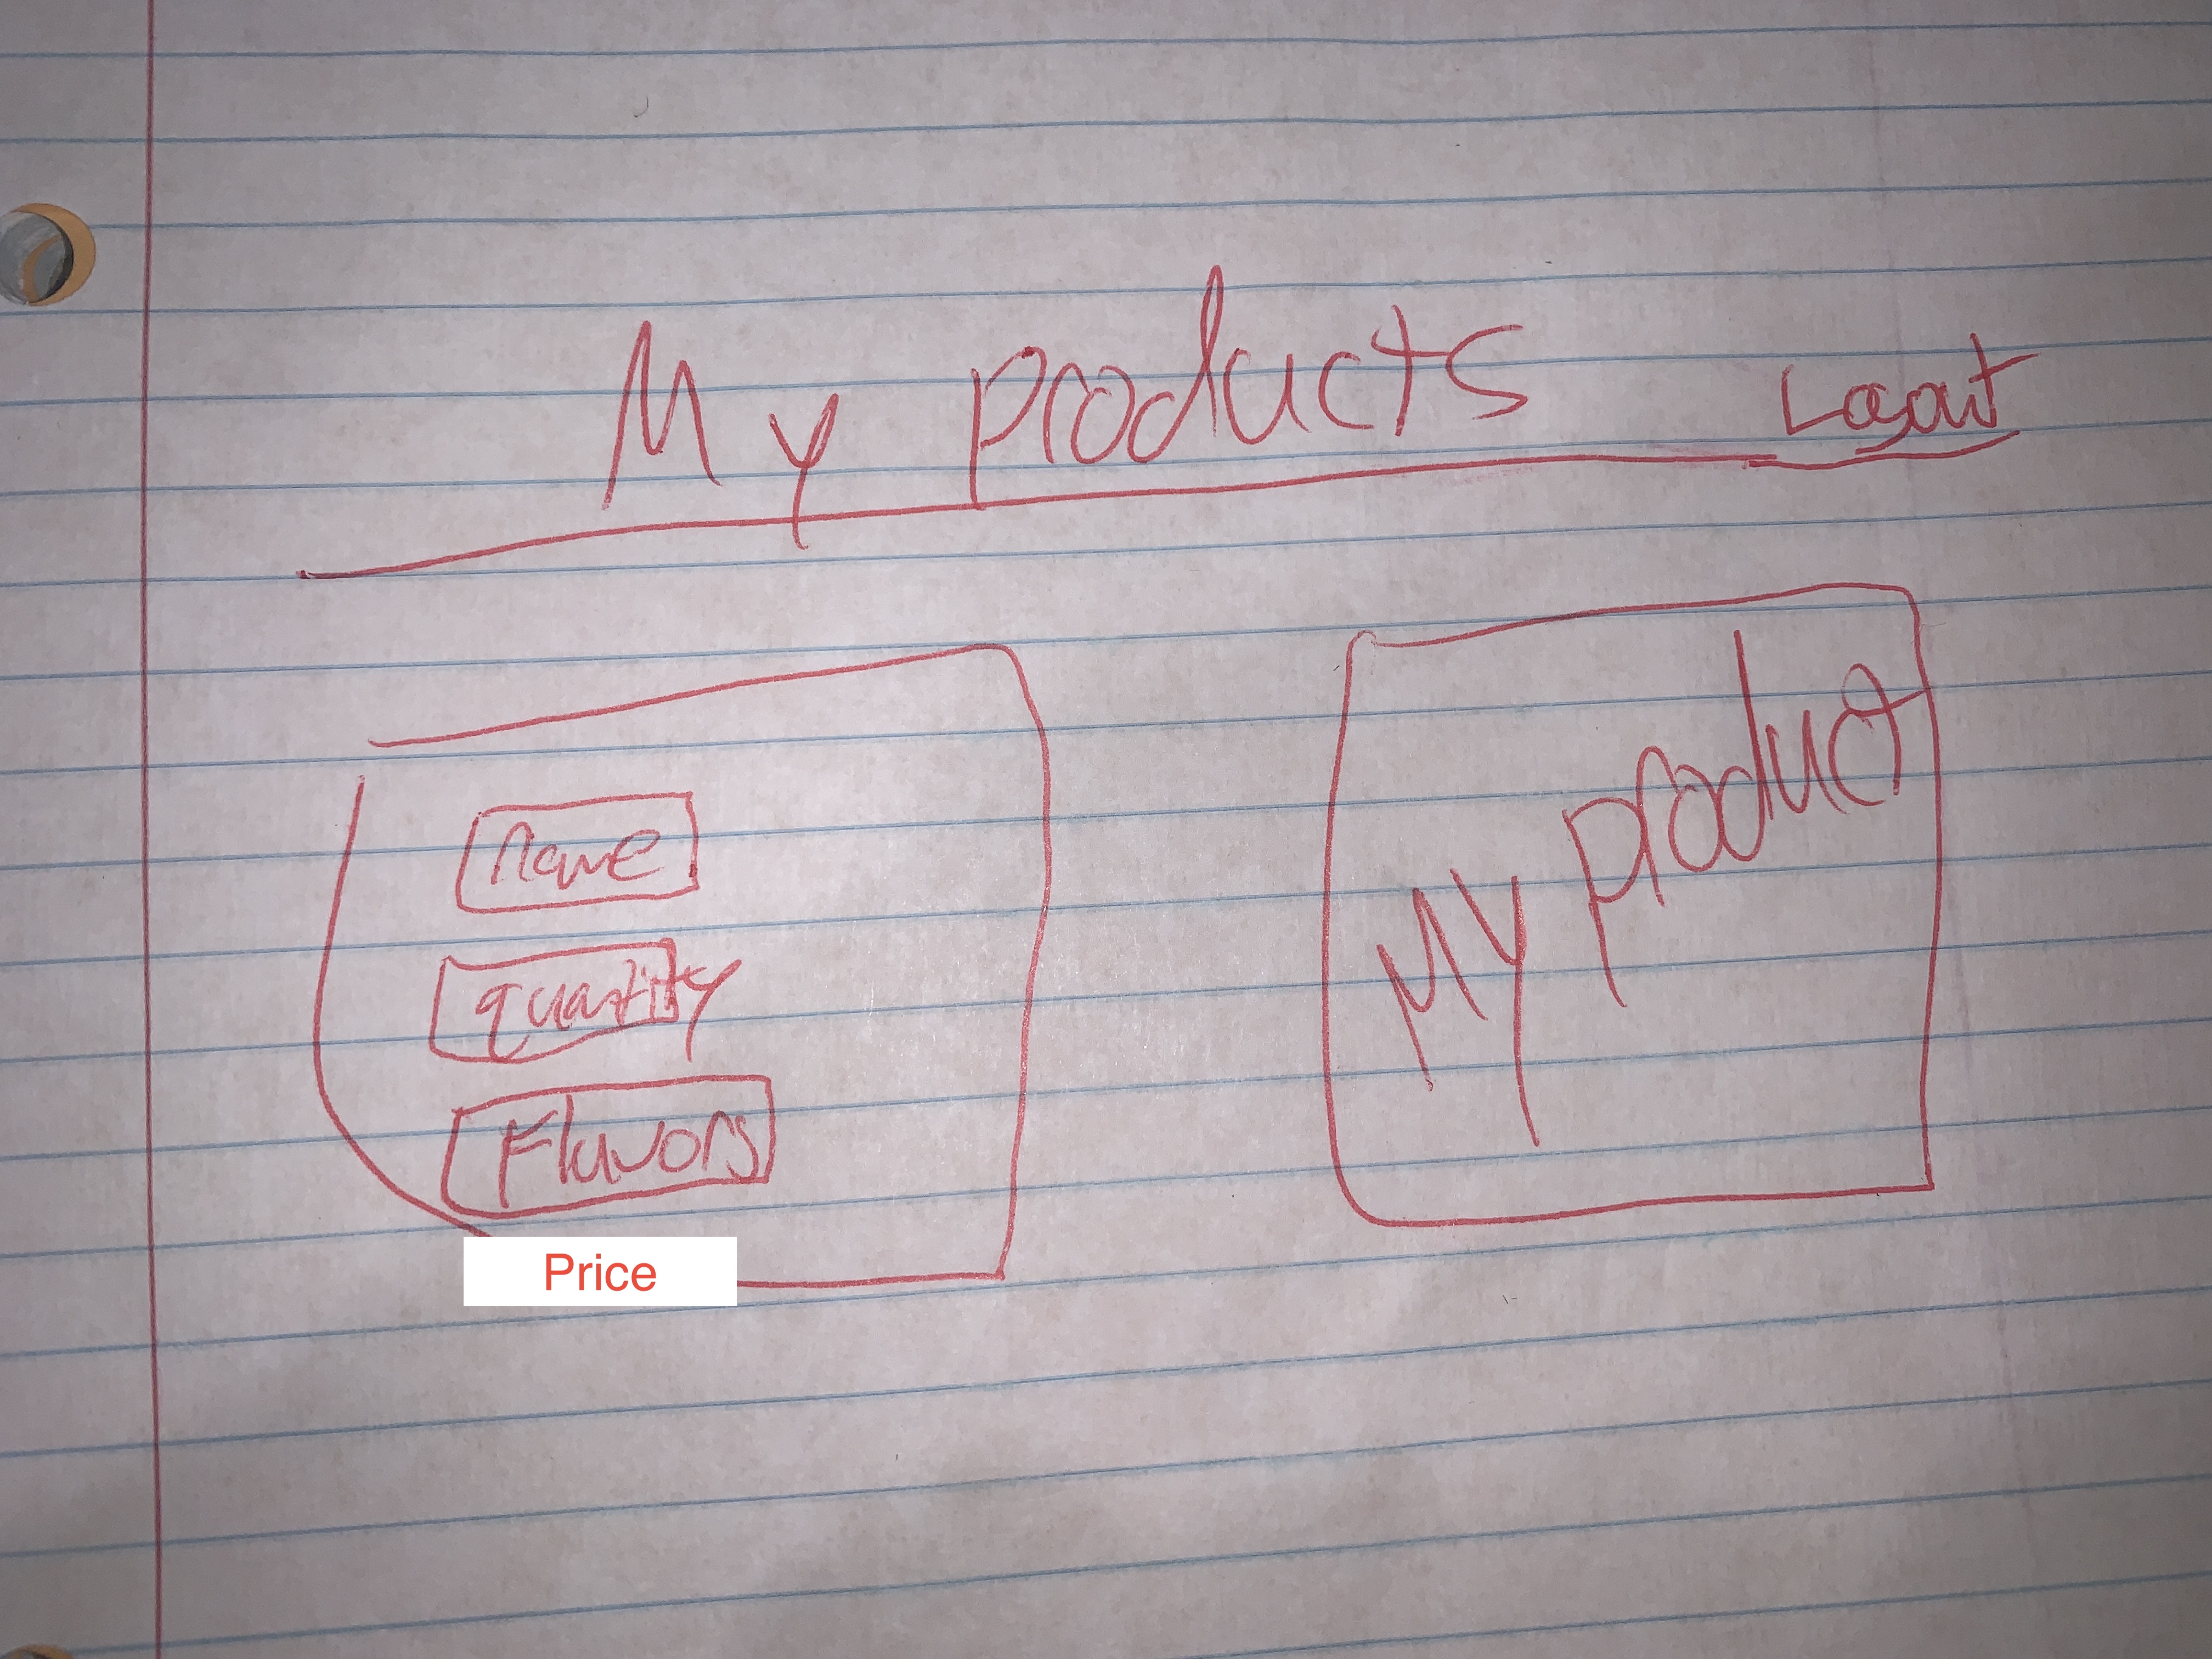 My products
Logout
name
quantity
Flavors
Price
My product